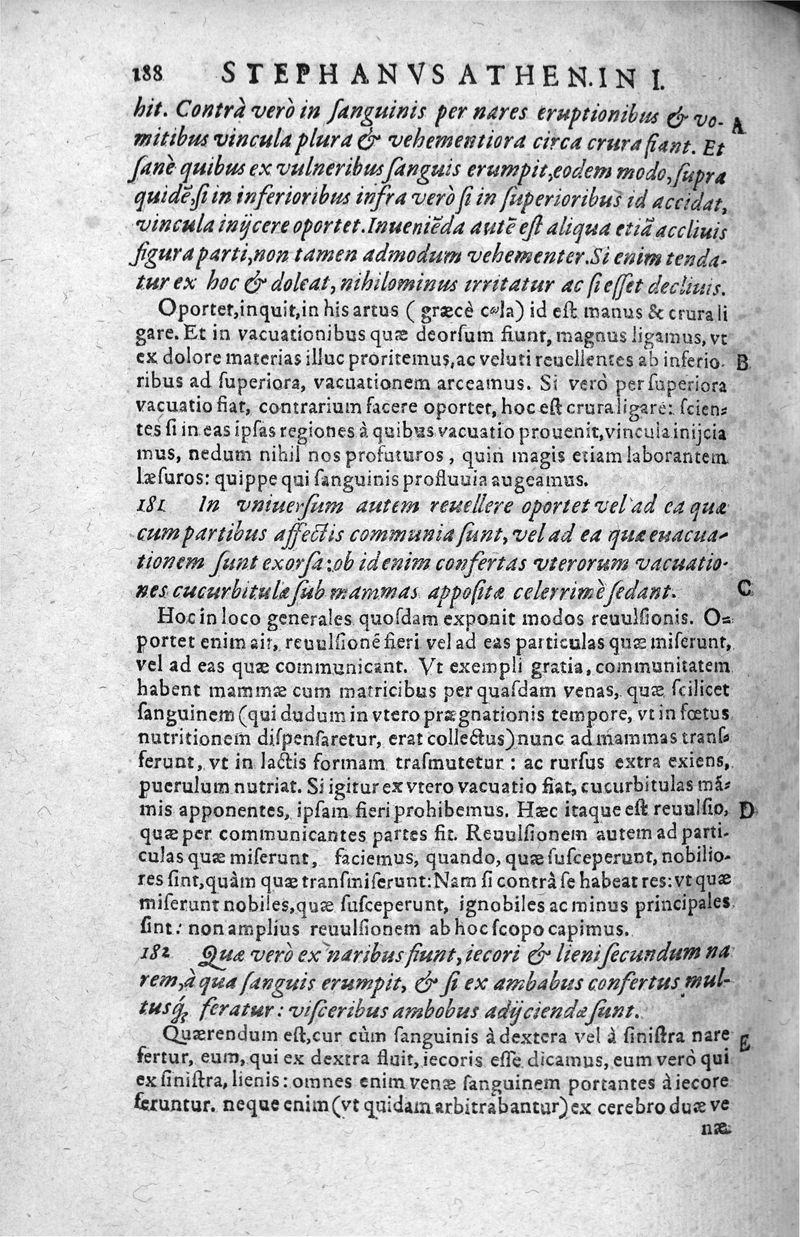 188 STEPHANVS ATHEN.IN I.
hit. Contrà verò in ſanguinis per nares eruptionibus & vo- A
mitibus vincula plura & vehementiora circa crura fiant. Et
ſanè quibus ex vulneribus ſanguis erumpit,eodem modo,ſupra
quidẽ,ſi in inferioribus infra verò ſi in ſuperioribus id accidat,
vincula inijcere oportet.Inueniẽda autẽ eſt aliqua etiã accliuis
figura parti,non tamen admodum vehementer.Si enim tenda-
tur ex hoc & doleat, nihilominus irritatur ac ſi eſſet decliuis.
Oportet,inquit,in his artus ( græcè cωla) id eſt manus & crura li
gare. Et in vacuationibus quæ deorſum fiunt, magnus ligamus, vt
ex dolore materias illuc proritemus,ac veluti reuellentes ab inferio- B
ribus ad ſuperiora, vacuationem arceamus. Si verò per ſuperiora
vacuatio fiat, contrarium facere oportet, hoc eſt crura ligare: ſcien-
tes ſi in eas ipſas regiones à quibus vacuatio prouenit,vincula inijcia
mus, nedum nihil nos profuturos , quin magis etiam laborantem
læſuros: quippe qui ſanguinis profluuia augeamus.
181 In vniuerſum autem reuellere oportet vel ad ea quæ
cum partibus affectis communia ſunt, vel ad ea quæ euacua-
tionem ſunt exorſa:ob id enim confertas vterorum vacuatio-
nes cucurbitulæ ſub mammas appoſitæ celerrimè ſedant. C
Hoc in loco generales quoſdam exponit modos reuulſionis. O-
portet enim ait, reuulſionẽ fieri vel ad eas particulas quæ miſerunt,
vel ad eas quæ communicant. Vt exempli gratia, communitatem
habent mammæ cum matricibus per quaſdam venas, quæ ſcilicet
ſanguinem (qui dudum in vtero prægnationis tempore, vt in fœtus
nutritionem diſpenſaretur, erat collectus) nunc ad mammas tranſ-
ferunt, vt in lactis formam traſmutetur : ac rurſus extra exiens,
puerulum nutriat. Si igitur ex vtero vacuatio fiat, cucurbitulas mã-
mis apponentes, ipſam fieri prohibemus. Hæc itaque eſt reuulſio, D
quæ per communicantes partes fit. Reuulſionem autem ad parti-
culas quæ miſerunt, faciemus, quando, quæ ſuſceperunt, nobilio-
res ſint,quàm quæ tranſmiſerunt:Nam ſi contrà ſe habeat res: vt quæ
miſerunt nobiles,quæ ſuſceperunt, ignobiles ac minus principales
ſint: non amplius reuulſionem ab hoc ſcopo capimus.
182 Quæ verò ex naribus fiunt,iecori & lieni ſecundum na
rem,à qua ſanguis erumpit, & ſi ex ambabus confertus mul-
tusq́; feratur: viſceribus ambobus adijciendæ ſunt.
Quærendum eſt,cur cùm ſanguinis à dextera vel à ſiniſtra nare E
fertur, eum, qui ex dextra fluit, iecoris eſſe dicamus, eum verò qui
ex ſiniſtra, lienis: omnes enim venæ ſanguinem portantes à iecore
feruntur. neque enim (vt quidam arbitrabantur) ex cerebro duæ ve
næ